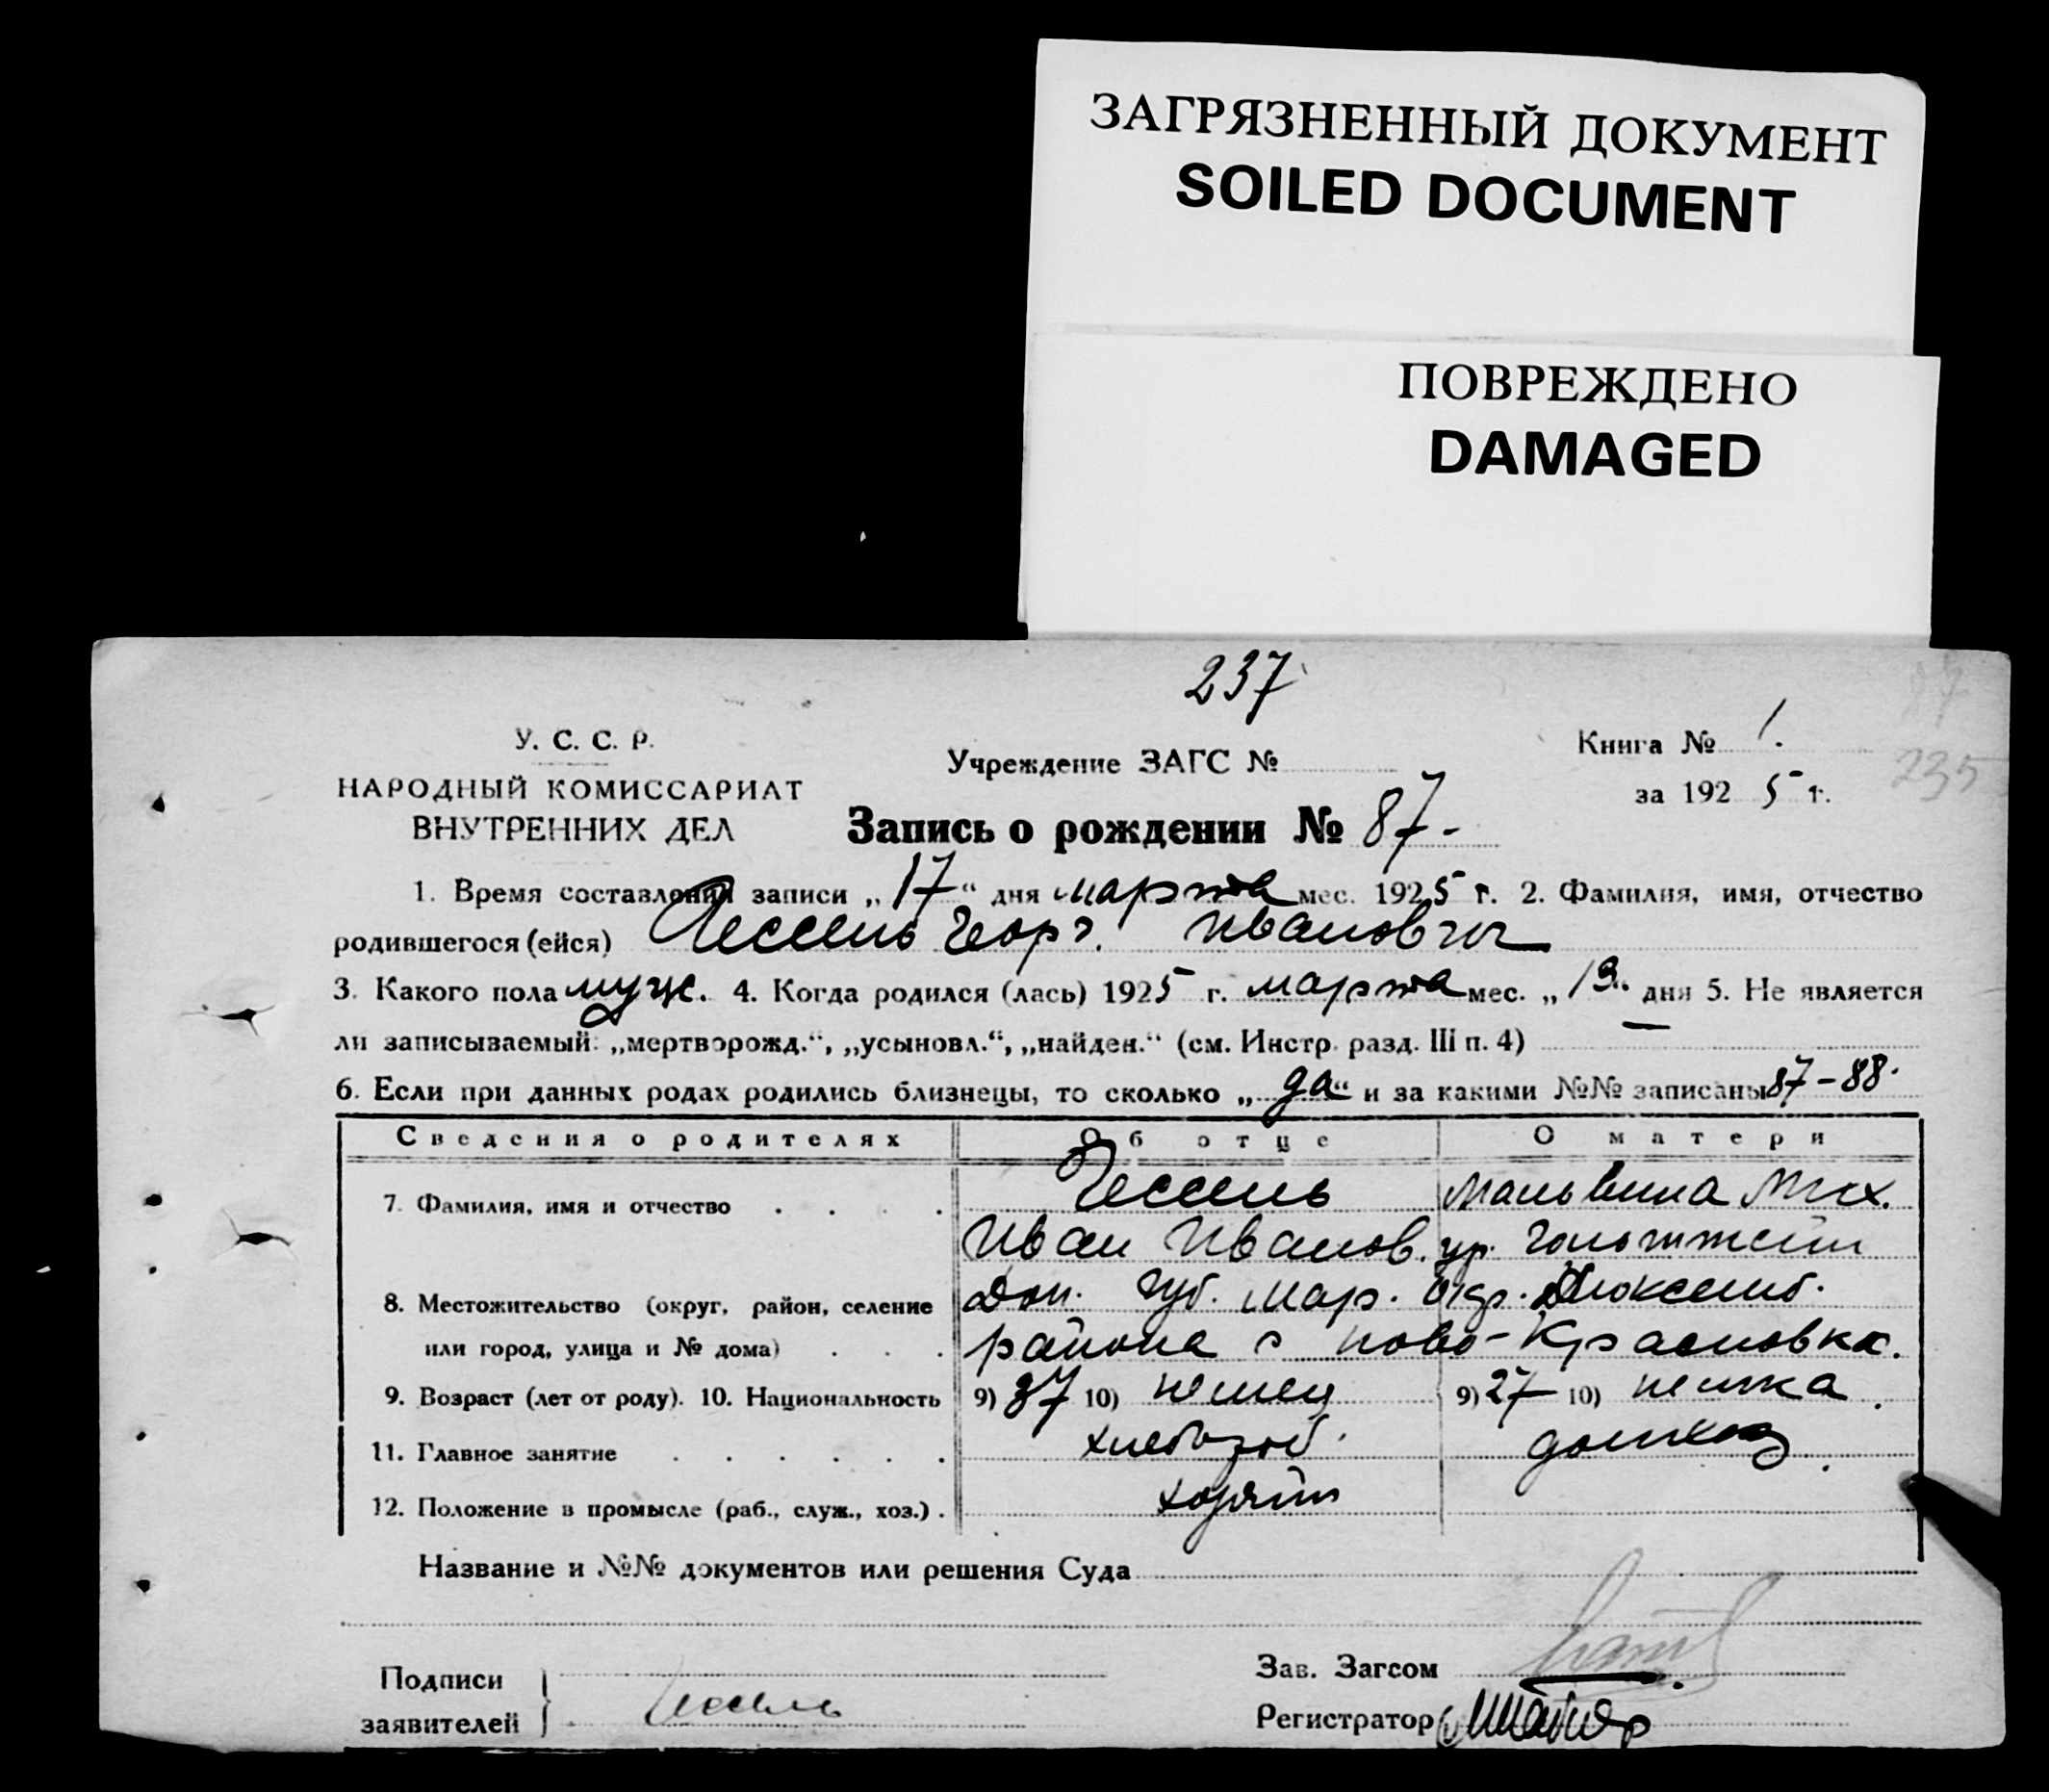 ЗАГРЯЗНЕННЫЙ ДОКУМЕНТ
SOILED DOCUMENT
ПОВРЕЖДЕНО
DAMAGED
237
У. С. С. Р.
НАРОДНЫЙ КОМИССАРИАТ
ВНУТРЕННИХ ДЕЛ
Учреждение ЗАГС №
Книга № 1.
за 1925 г.
235
Запись о рождении № 87-
1. Время составления записи „17“ дня марта мес. 1925 г. 2. Фамилия, имя, отчество
родившегося (ейся) Гессель Георг. Иванович
3. Какого пола муж. 4. Когда родился (лась) 1925 г. марта мес. „13“ дня 5. Не является
ли записываемый: „мертворожд.“, „усыновл.“, „найден.“ (см. Инстр. разд. III п. 4) —
6. Если при данных родах родились близнецы, то сколько „да“ и за какими №№ записаны 87-88.
Сведения о родителях Об отце О матери
7. Фамилия, имя и отчество . . . . Гессель Мальвина Мих.
Иван Иванов. ур.
8. Местожительство (округ, район, селение Дон. Губ. Мар. Окр. Люксемб.
или город, улица и № дома) . . . района с Ново-Красновка.
9. Возраст (лет от роду). 10. Национальность 9) 37 10) немец 9) 27 10) немка
11. Главное занятие . . . . . . хлебороб. домхоз
12. Положение в промысле (раб., служ., хоз.) . хозяин
Название и №№ документов или решения Суда
Подписи
заявителей
Гессель
Зав. Загсом
Регистратор